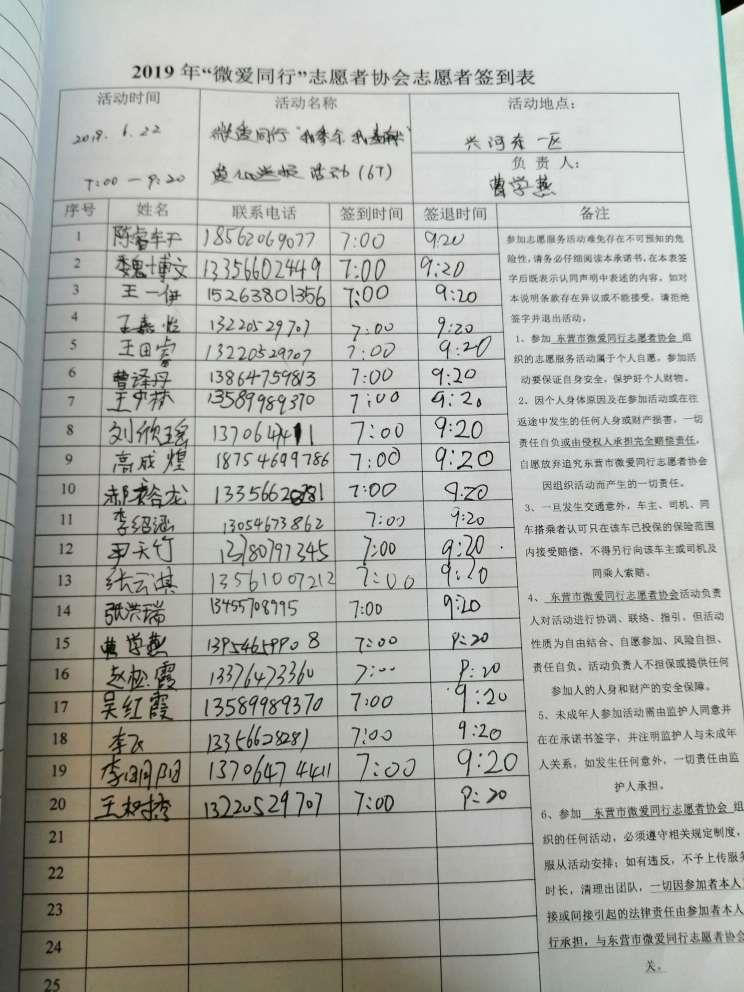 2019 年“微爱同行”志愿者协会志愿者签到表
活动时间 活动名称 活动地点：
2019. 6. 22 微爱同行“我奉献 兴河东一区
7:00 — 9:20 活动（67）
负 责 人：
曹学燕
序号 姓名 联系电话 签到时间 签退时间 备注
1 18562069077 7:00 9:20
2 魏博文 13356602449 7:00 9:20
3 王一伊 15263801356 7:00 9:20
4 王嘉怡 13220529707 7:00 9:20
5 王田睿 13220529707 7:00 9:20
6 曹译丹 13864759813 7:00 9:20
7 13589989370 7:00 9:20
8 刘欣瑶 7:00 9:20
9 高成煌 18754699786 7:00 9:20
10 7:00 9:20
11 李绍涵 13054673862 7:00 9:20
12 尹天竹 7:00 9:20
13 张云淇 13561007212 7:00 9:20
14 张洪瑞 13455708995 7:00 9:20
15 曹学燕 13954659908 7:00 9:20
16 赵松霞 13376473360 7:00 9:20
17 吴红霞 13589989370 7:00 9:20
18 李飞 13356628281 7:00 9:20
19 13706474411 7:00 9:20
20 13220529707 7:00 9:20
21
22
23
24
25
参加志愿服务活动难免存在不可预知的危
险性，请务必仔细阅读本承诺书，在本表签
字后既表示认同声明中表述的内容。如对
本说明条款存在异议或不能接受，请拒绝
签字并退出活动。
1、参加 东营市微爱同行志愿者协会 组
织的志愿服务活动属于个人自愿。参加活
动要保证自身安全，保护好个人财物。
2、因个人身体原因及在参加活动或在往
返途中发生的任何人身或财产损害，一切
责任自负或由侵权人承担完全赔偿责任，
自愿放弃追究东营市微爱同行志愿者协会
因组织活动而产生的一切责任。
3、一旦发生交通意外，车主、司机、同
车搭乘者认可只在该车已投保的保险范围
内接受赔偿，不得另行向该车主或司机及
同乘人索赔。
4、 东营市微爱同行志愿者协会活动负责
人对活动进行协调、联络、指引，但活动
性质为自由结合、自愿参加、风险自担、
责任自负。活动负责人不担保或提供任何
参加人的人身和财产的安全保障。
5、未成年人参加活动需由监护人同意并
在在承诺书签字，并注明监护人与未成年
人关系，如发生任何意外，一切责任由监
护人承担。
6、参加 东营市微爱同行志愿者协会 组
织的任何活动，必须遵守相关规定制度，
服从活动安排；如有违反，不予上传服务
时长，清理出团队，一切因参加者本人直
接或间接引起的法律责任由参加者本人
行承担，与东营市微爱同行志愿者协会
关。